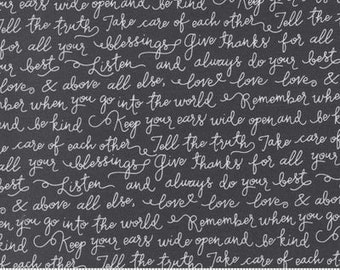 wide open and be kind Take care of each other Tell the
Tell the truth Take care of each other
for all your blessings Give thanks for all
your best Listen and always do your best
love & above all else, love love love &
Remember when you go into the world Remember when
and be kind Keep your ears wide open and be kind
care of each other Tell the truth Take care of
all your blessings Give thanks for all your
best Listen and always do your best
love & above all else, love love love & above
when you go into the world Remember when you
kind Keep your ears wide open and be kind
Tell the truth Take care of each other